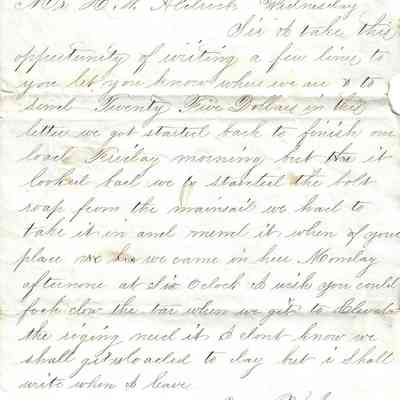 Mr. H. M. Aldrich Wednesday
Sir I take this
oppertunity of writing a few lines to
you let you know where we are & to
send Twenty Five Dollars in this
letter we got started back to finish our
load Friday morning but the it
looked bad we to started the bolt
roap from the mainsail we had to
take it in and mend it when of your
place we we came in here Monday
afternone at Six Oclock I wish you could
the tar when we git to
the riging need it I dont know we
shall git uloaded to day but i Shall
write when I leave